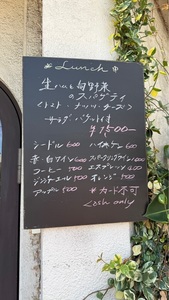 *Lunch*
生ハムと旬野菜
のスパゲティ
<トマト・ナッツ・チーズ>
サラダ バゲット付
¥1500—
シードル 600 ハイボール 600
赤・白ワイン 600 スパークリングワイン 600
コーヒー 500 エスプレッソ 400
ジンジャエール 500 オレンジ 500
アップル 500 *カード不可
Cash only